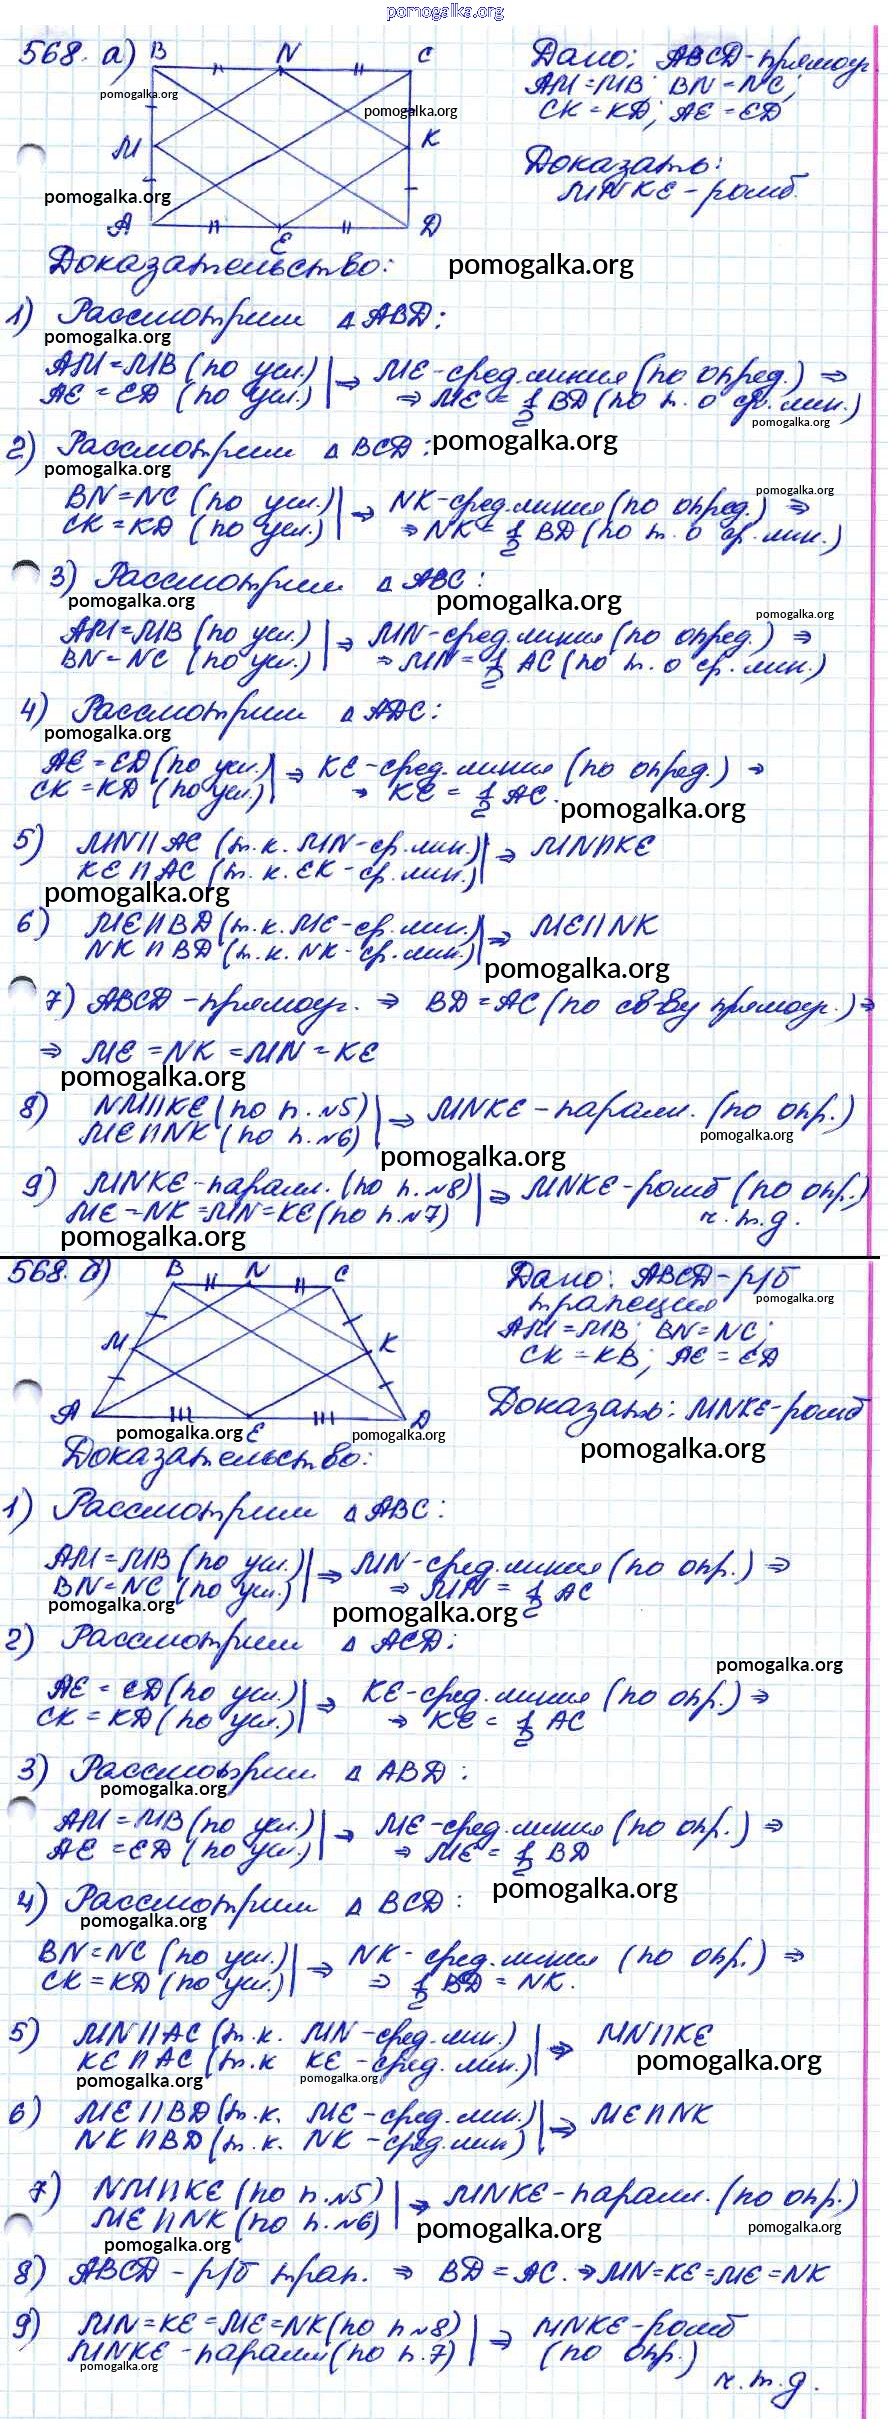 pomogalka.org
568. а) B N C
Дано: ABCD-прямоуг.
AM = MB; BN = NC;
CK = KD; AE = ED
pomogalka.org
pomogalka.org
M K
Доказать:
MNKE - ромб.
pomogalka.org
A E D
Доказательство:
pomogalka.org
1) Рассмотрим △ ABD:
pomogalka.org
AM = MB (по усл.) | ⇒ ME - сред. линия (по опред.) ⇒
AE = ED (по усл.) | ⇒ ME = 1/2 BD (по т. о ср. лин.)
pomogalka.org
2) Рассмотрим △ BCD:
pomogalka.org
pomogalka.org
BN = NC (по усл.) | ⇒ NK - сред. линия (по опред.) ⇒
pomogalka.org
CK = KD (по усл.) | ⇒ NK = 1/2 BD (по т. о ср. лин.)
3) Рассмотрим △ ABC:
pomogalka.org
pomogalka.org
pomogalka.org
AM = MB (по усл.) | ⇒ MN - сред. линия (по опред.) ⇒
BN = NC (по усл.) | ⇒ MN = 1/2 AC (по т. о ср. лин.)
4) Рассмотрим △ ADC:
pomogalka.org
AE = ED (по усл.) | ⇒ KE - сред. линия (по опред.) ⇒
CK = KD (по усл.) | ⇒ KE = 1/2 AC.
pomogalka.org
5) MN || AC (т.к. MN - ср. лин.) | ⇒ MN || KE
KE || AC (т.к. EK - ср. лин.) |
pomogalka.org
6) ME || BD (т.к. ME - ср. лин.) | ⇒ ME || NK
NK || BD (т.к. NK - ср. лин.) |
pomogalka.org
7) ABCD - прямоуг. ⇒ BD = AC (по св-ву прямоуг.) ⇒
⇒ ME = NK = MN = KE
pomogalka.org
8) NM || KE (по п. №5) | ⇒ MNKE - паралл. (по опр.)
ME || NK (по п. №6) |
pomogalka.org
pomogalka.org
9) MNKE - паралл. (по п. №8) | ⇒ MNKE - ромб (по опр.)
ME = NK = MN = KE (по п. №7) | ч.т.д.
pomogalka.org
568. б) B N C
Дано: ABCD - р/б
трапеция
pomogalka.org
AM = MB; BN = NC;
CK = KB; AE = ED
M K
Доказать: MNKE - ромб
A E D
pomogalka.org
pomogalka.org
pomogalka.org
Доказательство:
1) Рассмотрим △ ABC:
AM = MB (по усл.) | ⇒ MN - сред. линия (по опр.) ⇒
BN = NC (по усл.) | ⇒ MN = 1/2 AC
pomogalka.org
pomogalka.org
2) Рассмотрим △ ACD:
pomogalka.org
AE = ED (по усл.) | ⇒ KE - сред. линия (по опр.) ⇒
CK = KD (по усл.) | ⇒ KE = 1/2 AC
3) Рассмотрим △ ABD:
pomogalka.org
AM = MB (по усл.) | ⇒ ME - сред. линия (по опр.) ⇒
AE = ED (по усл.) | ⇒ ME = 1/2 BD
pomogalka.org
4) Рассмотрим △ BCD:
pomogalka.org
BN = NC (по усл.) | ⇒ NK - сред. линия (по опр.) ⇒
CK = KD (по усл.) | ⇒ 1/2 BD = NK.
5) MN || AC (т.к. MN - сред. лин.) | ⇒ MN || KE
KE || AC (т.к KE - сред. лин.) |
pomogalka.org
pomogalka.org
pomogalka.org
6) ME || BD (т.к. ME - сред. лин.) | ⇒ ME || NK
NK || BD (т.к. NK - сред. лин) |
7) NM || KE (по п. №5) | ⇒ MNKE - паралл. (по опр.)
ME || NK (по п. №6) |
pomogalka.org
pomogalka.org
pomogalka.org
8) ABCD - р/б трап. ⇒ BD = AC. ⇒ MN = KE = ME = NK
9) MN = KE = ME = NK (по п №8) | ⇒ MNKE - ромб
MNKE - паралл (по п. 7) | (по опр.)
pomogalka.org
ч.т.д.